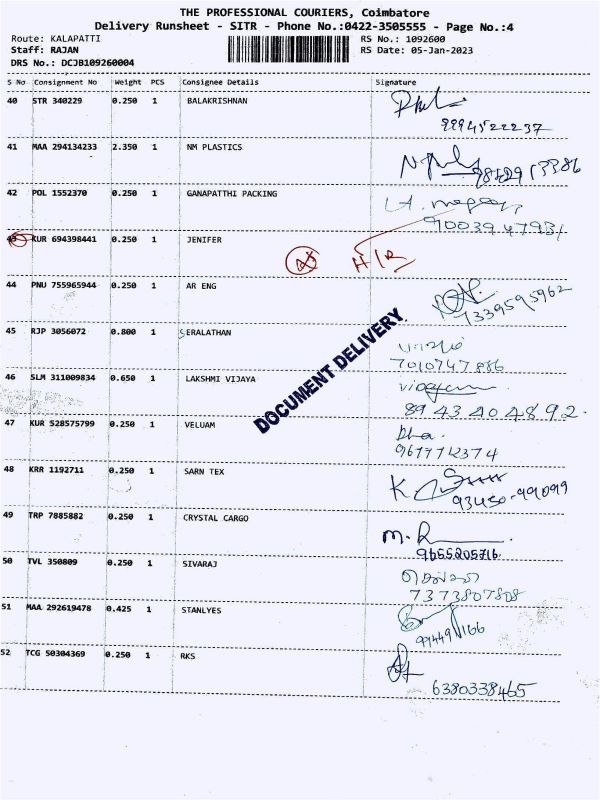 THE PROFESSIONAL COURIERS, Coimbatore
Delivery Runsheet - SITR - Phone No.:0422-3505555 - Page No.:4
Route: KALAPATTI RS No.: 1092600
Staff: RAJAN RS Date: 05-Jan-2023
DRS No.: DCJB109260004
S No Consignment No Weight PCS Consignee Details Signature
40 STR 340229 0.250 1 BALAKRISHNAN
9994522237
41 MAA 294134233 2.350 1 NM PLASTICS
42 POL 1552370 0.250 1 GANAPATTHI PACKING
9003947931
43 KUR 694398441 0.250 1 JENIFER
44 PNU 755965944 0.250 1 AR ENG
7339595962
45 RJP 3056072 0.800 1 SERALATHAN
7010747886
DOCUMENT DELIVERY.
46 SLM 311009834 0.650 1 LAKSHMI VIJAYA
8943404892.
47 KUR 528575799 0.250 1 VELUAM
9677712374
48 KRR 1192711 0.250 1 SARN TEX
93450-99099
49 TRP 7885882 0.250 1 CRYSTAL CARGO
M. R
9655205716.
50 TVL 350809 0.250 1 SIVARAJ
7373807808
51 MAA 292619478 0.425 1 STANLYES
52 TCG 50304369 0.250 1 RKS
6380338465